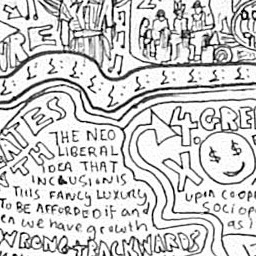 THE NEO
LIBERAL
IDEA THAT
INCLUSION IS
THIS FANCY LUXURY
TO BE AFFORDED if and
we have growth
WRONG + BACKWARDS
4. GRE
upon coope
Sociopa
as i